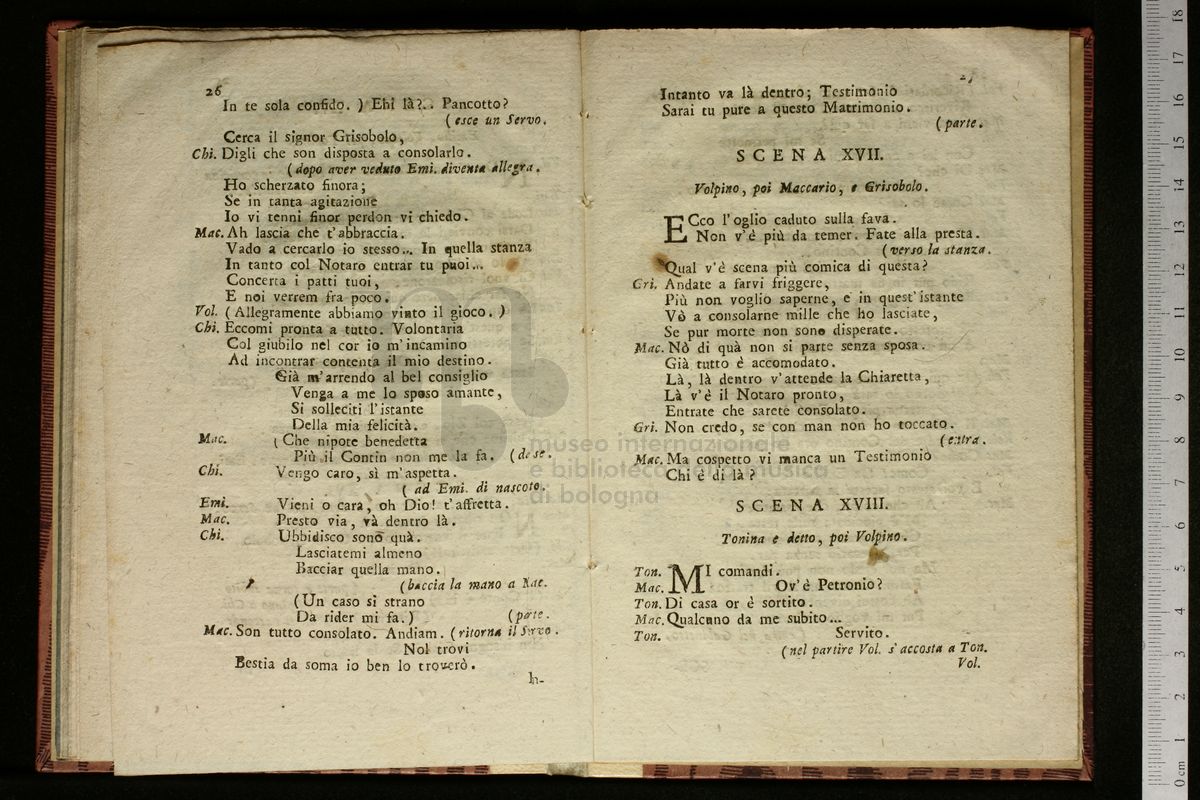 26
In te sola confido. ) Ehi là?.. Pancotto?
( esce un Servo.
Cerca il signor Grisobolo,
Chi. Digli che son disposta a consolarlo.
( dopo aver veduto Emi. diventa allegra.
Ho scherzato finora;
Se in tanta agitazione
Io vi tenni finor perdon vi chiedo.
Mac. Ah lascia che t'abbraccia.
Vado a cercarlo io stesso... In quella stanza
In tanto col Notaro entrar tu puoi...
Concerta i patti tuoi,
E noi verrem fra poco.
Vol. ( Allegramente abbiamo vinto il gioco. )
Chi. Eccomi pronta a tutto. Volontaria
Col giubilo nel cor io m'incamino
Ad incontrar contenta il mio destino.
Già m'arrendo al bel consiglio
Venga a me lo sposo amante,
Si solleciti l'istante
Della mia felicità.
Mac. ( Che nipote benedetta
Più il Contin non me la fa. (da se.
Chi. Vengo caro, sì m'aspetta.
( ad Emi. di nascoto.
Emi. Vieni o cara, oh Dio! t'affretta.
Mac. Presto via, và dentro là.
Chi. Ubbidisco sono quà.
Lasciatemi almeno
Bacciar quella mano.
(baccia la mano a Mac.
(Un caso sì strano
Da rider mi fa.) (parte.
Mac. Son tutto consolato. Andiam. (ritorna il Servo.
Nol trovi
Bestia da soma io ben lo troverò.
In-
27
Intanto va là dentro; Testimonio
Sarai tu pure a questo Matrimonio.
( parte.
SCENA XVII.
Volpino, poi Maccario, e Grisobolo.
ECco l'oglio caduto sulla fava.
Non v'è più da temer. Fate alla presta.
( verso la stanza.
Qual v'è scena più comica di questa?
Gri. Andate a farvi friggere,
Più non voglio saperne, e in quest'istante
Vò a consolarne mille che ho lasciate,
Se pur morte non sono disperate.
Mac. Nò di quà non si parte senza sposa.
Già tutto è accomodato.
Là, là dentro v'attende la Chiaretta,
Là v'è il Notaro pronto,
Entrate che sarete consolato.
Gri. Non credo, se con man non ho toccato.
( entra.
Mac. Ma cospetto vi manca un Testimonio
Chi è di là?
SCENA XVIII.
Tonina e detto, poi Volpino.
Ton. MI comandi.
Mac. Ov'è Petronio?
Ton. Di casa or è sortito.
Mac. Qualcuno da me subito...
Ton. Servito.
(nel partire Vol. s'accosta a Ton.
Vol.
museo internazionale
e biblioteca della musica
di bologna
0 cm 1 2 3 4 5 6 7 8 9 10 11 12 13 14 15 16 17 18